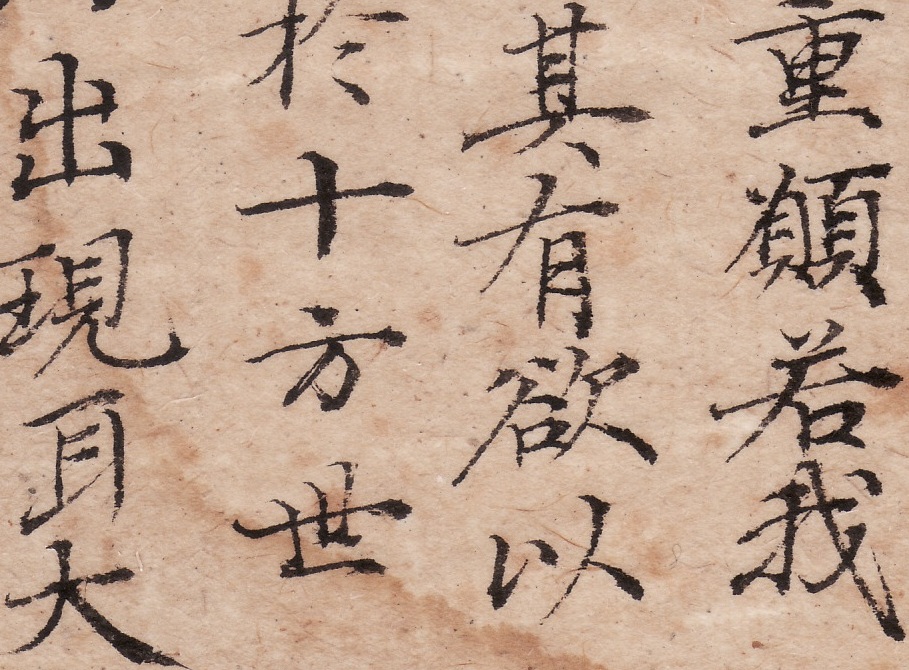 重願若我
其有欲以
於十方世
出現耳大